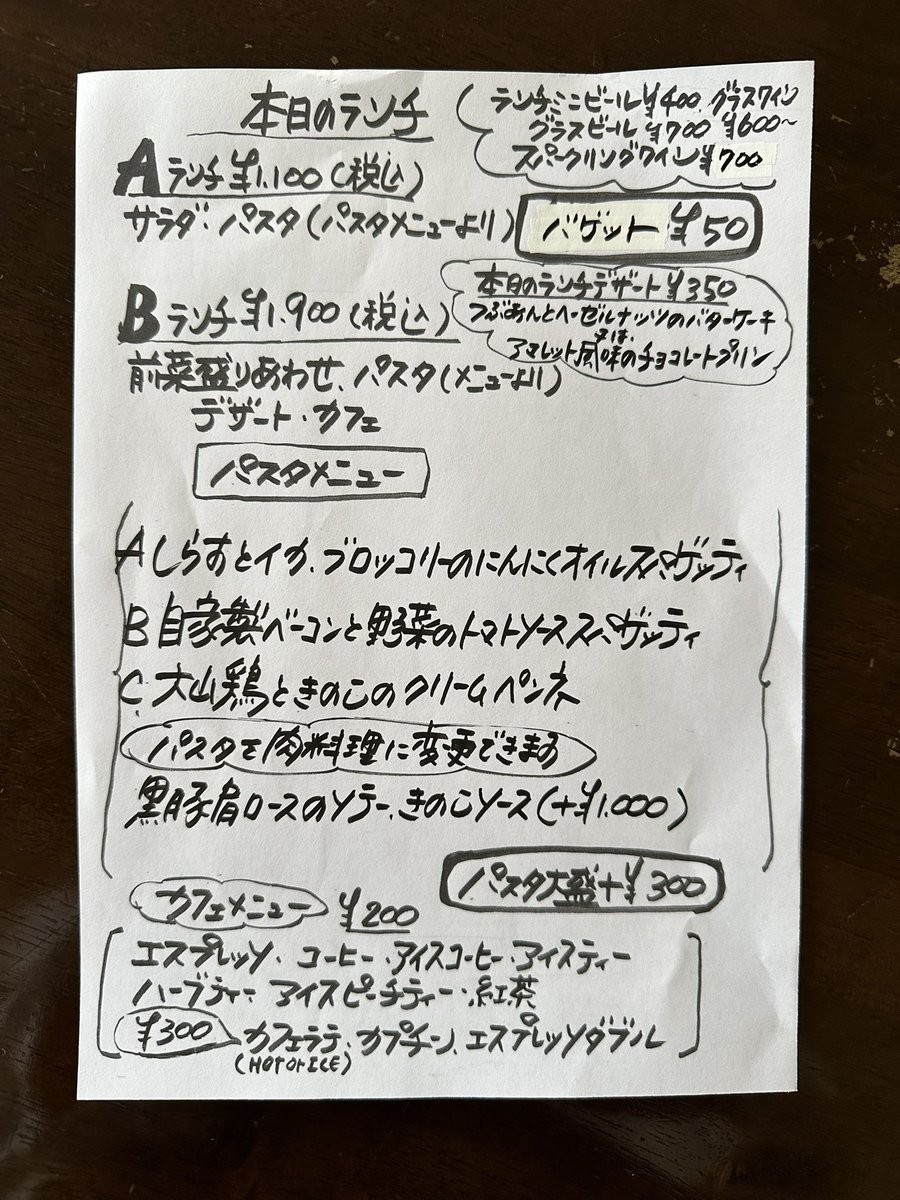 本日のランチ
ランチミニビール¥400 グラスワイン
グラスビール ¥700 ¥600〜
スパークリングワイン¥700
Aランチ¥1.100(税込)
サラダ・パスタ(パスタメニューより)
バゲット ¥50
本日のランチデザート¥350
つぶあんとヘーゼルナッツのバターケーキ
又は、
アマレット風味のチョコレートプリン
Bランチ¥1.900(税込)
前菜盛りあわせ、パスタ(メニューより)
デザート・カフェ
パスタメニュー
A しらすとイカ、ブロッコリーのにんにくオイルスパゲッティ
B 自家製ベーコンと野菜のトマトソーススパゲッティ
C 大山鶏ときのこのクリームペンネ
パスタを肉料理に変更できます
黒豚肩ロースのソテー、きのこソース(+¥1.000)
パスタ大盛+¥300
カフェメニュー ¥200
エスプレッソ・コーヒー・アイスコーヒー・アイスティー
ハーブティー・アイスピーチティー・紅茶
¥300 カフェラテ、カプチーノ、エスプレッソダブル
(HOT or ICE)